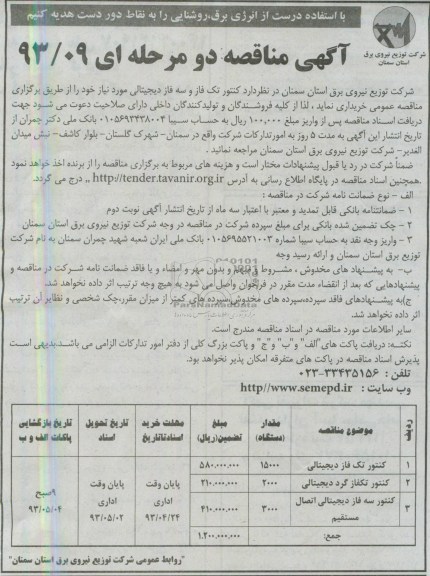 با استفاده درست از انرژی برق،روشنایی را به نقاط دور دست هدیه کنیم
شرکت توزیع نیروی برق
استان سمنان
آگهی مناقصه دو مرحله ای ۹۳/۰۹
شرکت توزیع نیروی برق استان سمنان در نظردارد کنتور تک فاز و سه فاز دیجیتالی مورد نیاز خود را از طریق برگزاری
مناقصه عمومی خریداری نماید ، لذا از کلیه فروشندگان و تولیدکنندگان داخلی دارای صلاحیت دعوت می شود جهت
دریافت اسناد مناقصه پس از واریز مبلغ ۱۰۰,۰۰۰ ریال به حساب سیبا ۰۱۰۵۶۹۳۴۳۸۰۰۴ بانک ملی دکتر چمران از
تاریخ انتشار این آگهی به مدت ۵ روز به امورتدارکات شرکت واقع در سمنان- شهرک گلستان- بلوار کاشف- نبش میدان
الغدیر- شرکت توزیع نیروی برق استان سمنان مراجعه نمائید .
ضمناً شرکت در رد یا قبول پیشنهادات مختار است و هزینه های مربوط به برگزاری مناقصه را از برنده اخذ خواهد نمود
.همچنین اسناد مناقصه در پایگاه اطلاع رسانی به آدرس http://tender.tavanir.org.ir ,, درج می گردد.
الف - نوع ضمانت نامه شرکت در مناقصه :
۱ - ضمانتنامه بانکی قابل تمدید و معتبر با اعتبار سه ماه از تاریخ انتشار آگهی نوبت دوم
۲ - چک تضمین شده بانکی برای مبلغ سپرده شرکت در مناقصه در وجه شرکت توزیع نیروی برق استان سمنان
۳ - واریز وجه نقد به حساب سیبا شماره ۰۱۰۵۶۹۵۵۲۱۰۰۲ بانک ملی ایران شعبه شهید چمران سمنان به نام شرکت
توزیع نیروی برق استان سمنان و ارائه رسید وجه
ب- به پیشنهاد های مخدوش ، مشروط و مبهم و بدون مهر و امضاء و یا فاقد ضمانت نامه شرکت در مناقصه و
پیشنهادهایی که بعد از انقضاء مدت مقرر در فراخوان واصل می شود به هیچ وجه ترتیب اثر داده نخواهد شد.
ج)به پیشنهادهای فاقد سپرده،سپرده های مخدوش،سپرده های کمتر از میزان مقرر،چک شخصی و نظایر آن ترتیب
اثر داده نخواهد شد.
سایر اطلاعات مورد مناقصه در اسناد مناقصه مندرج است.
نکته: دریافت پاکت های"الف"و"ب"و"ج"و پاکت بزرگ کلی از دفتر امور تدارکات الزامی می باشد.بدیهی است
پذیرش اسناد مناقصه در پاکت های متفرقه امکان پذیر نخواهد بود.
تلفن : ۰۲۳-۳۳۴۳۵۱۵۶
وب سایت : http//www.semepd.ir
ردیف | موضوع مناقصه | مقدار (دستگاه) | مبلغ تضمین(ریال) | مهلت خرید اسنادتاتاریخ | تاریخ تحویل اسناد | تاریخ بازگشایی پاکات الف و ب
۱ | کنتور تک فاز دیجیتالی | ۱۵۰۰۰ | ۵۸۰,۰۰۰,۰۰۰ | پایان وقت اداری ۹۳/۰۴/۲۴ | پایان وقت اداری ۹۳/۰۵/۰۲ | ۹صبح ۹۳/۰۵/۰۴
۲ | کنتور تکفاز گرد دیجیتالی | ۲۰۰۰ | ۲۱۰,۰۰۰,۰۰۰
۳ | کنتور سه فاز دیجیتالی اتصال مستقیم | ۳۰۰۰ | ۴۱۰,۰۰۰,۰۰۰
جمع: | ۱,۲۰۰,۰۰۰,۰۰۰
"روابط عمومی شرکت توزیع نیروی برق استان سمنان"